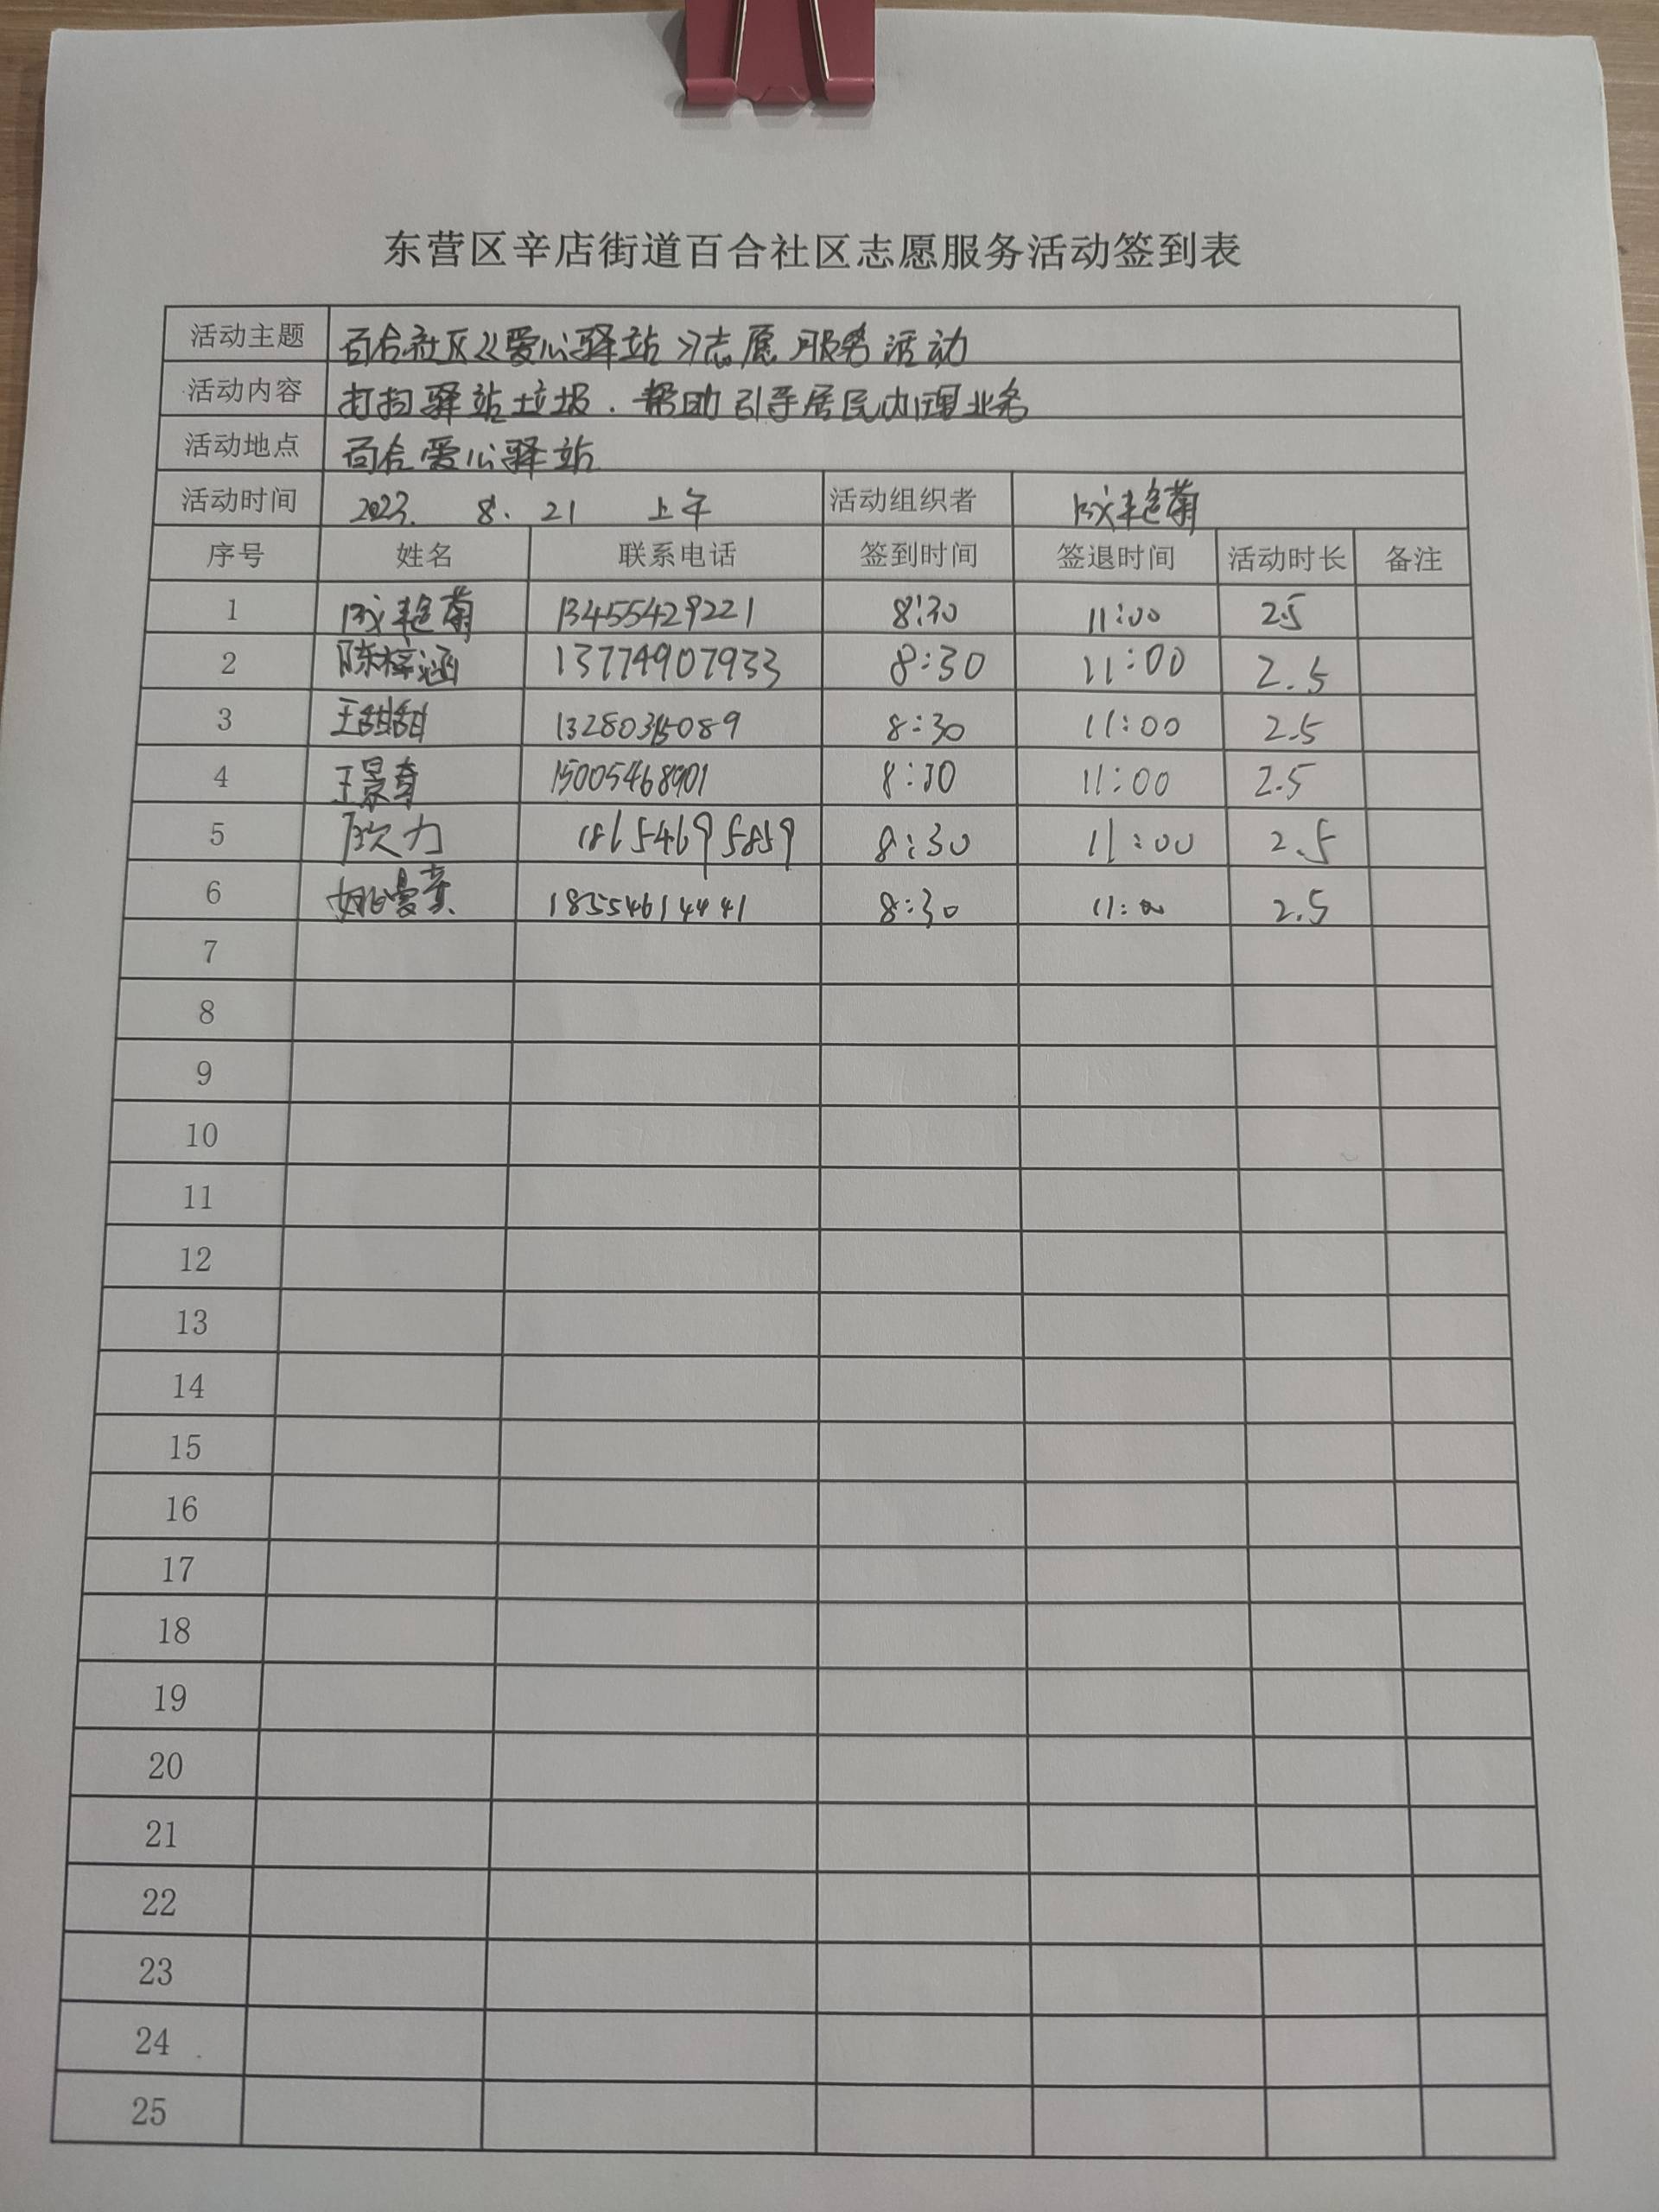 东营区辛店街道百合社区志愿服务活动签到表
活动主题 百合社区《爱心驿站》志愿服务活动
活动内容 打扫驿站垃圾.帮助引导居民办理业务
活动地点 百合爱心驿站
活动时间 2023. 8. 21 上午 活动组织者 艳菊
序号 姓名 联系电话 签到时间 签退时间 活动时长 备注
1 艳菊 13455429221 8:30 11:00 2.5
2 陈梓涵 13774907933 8:30 11:00 2.5
3 王甜甜 8:30 11:00 2.5
4 王景奇 15005468901 8:30 11:00 2.5
5 力 18654695859 8:30 11:00 2.5
6 姚曼 18554614441 8:30 11:00 2.5
7
8
9
10
11
12
13
14
15
16
17
18
19
20
21
22
23
24
25